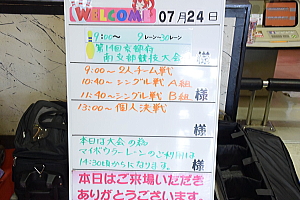 WELCOME
07月24日
9:00～ 9レーン～30レーン
南京都競技大会
9:00～ 2人チーム戦
10:40～ シングル戦 A組
11:40～ シングル戦 B組 様
13:00～ 個人決戦
様
本日は大会の為
マイボウラーレーンのご利用は
14:30頃からになります。
本日はご来場いただき
ありがとうございます。